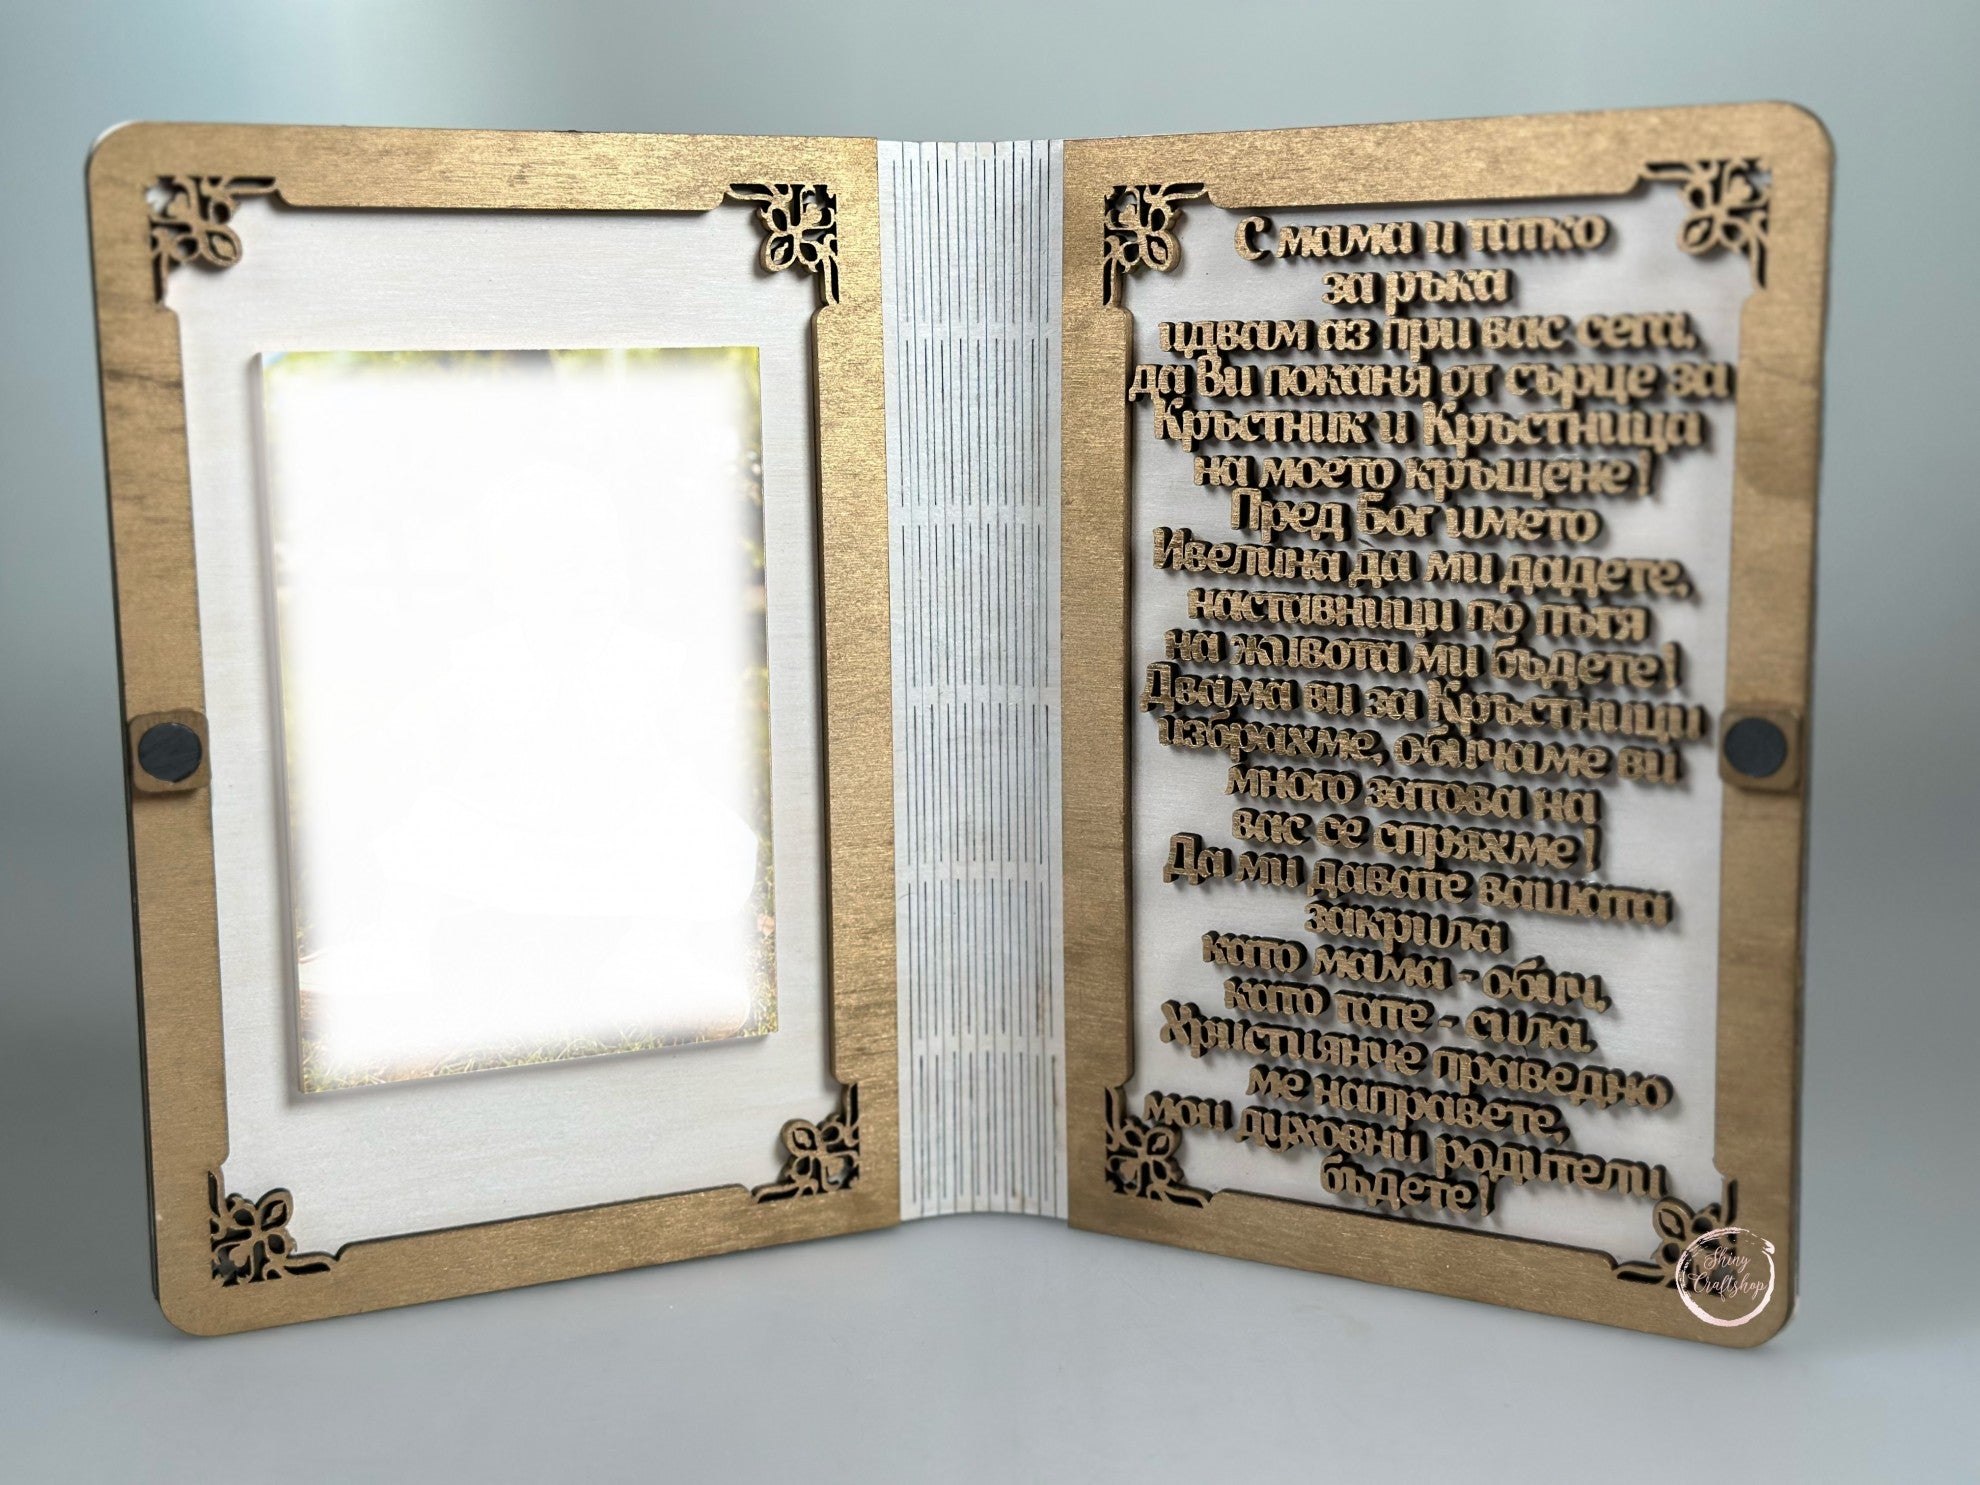 С мама и татко
за ръка
идвам аз при вас сега,
да Ви поканя от сърце за
Кръстник и Кръстница
на моето кръщене!
Пред Бог името
Ивелина да ми дадете,
наставници по пътя
на живота ми бъдете!
Двама ви за Кръстници
избрахме, обичаме ви
много затова на
вас се спряхме!
Да ми давате вашата
закрила
като мама - обич,
като тате - сила.
Християнче праведно
ме направете,
мои духовни родители
бъдете!
Shiny
Craftshop